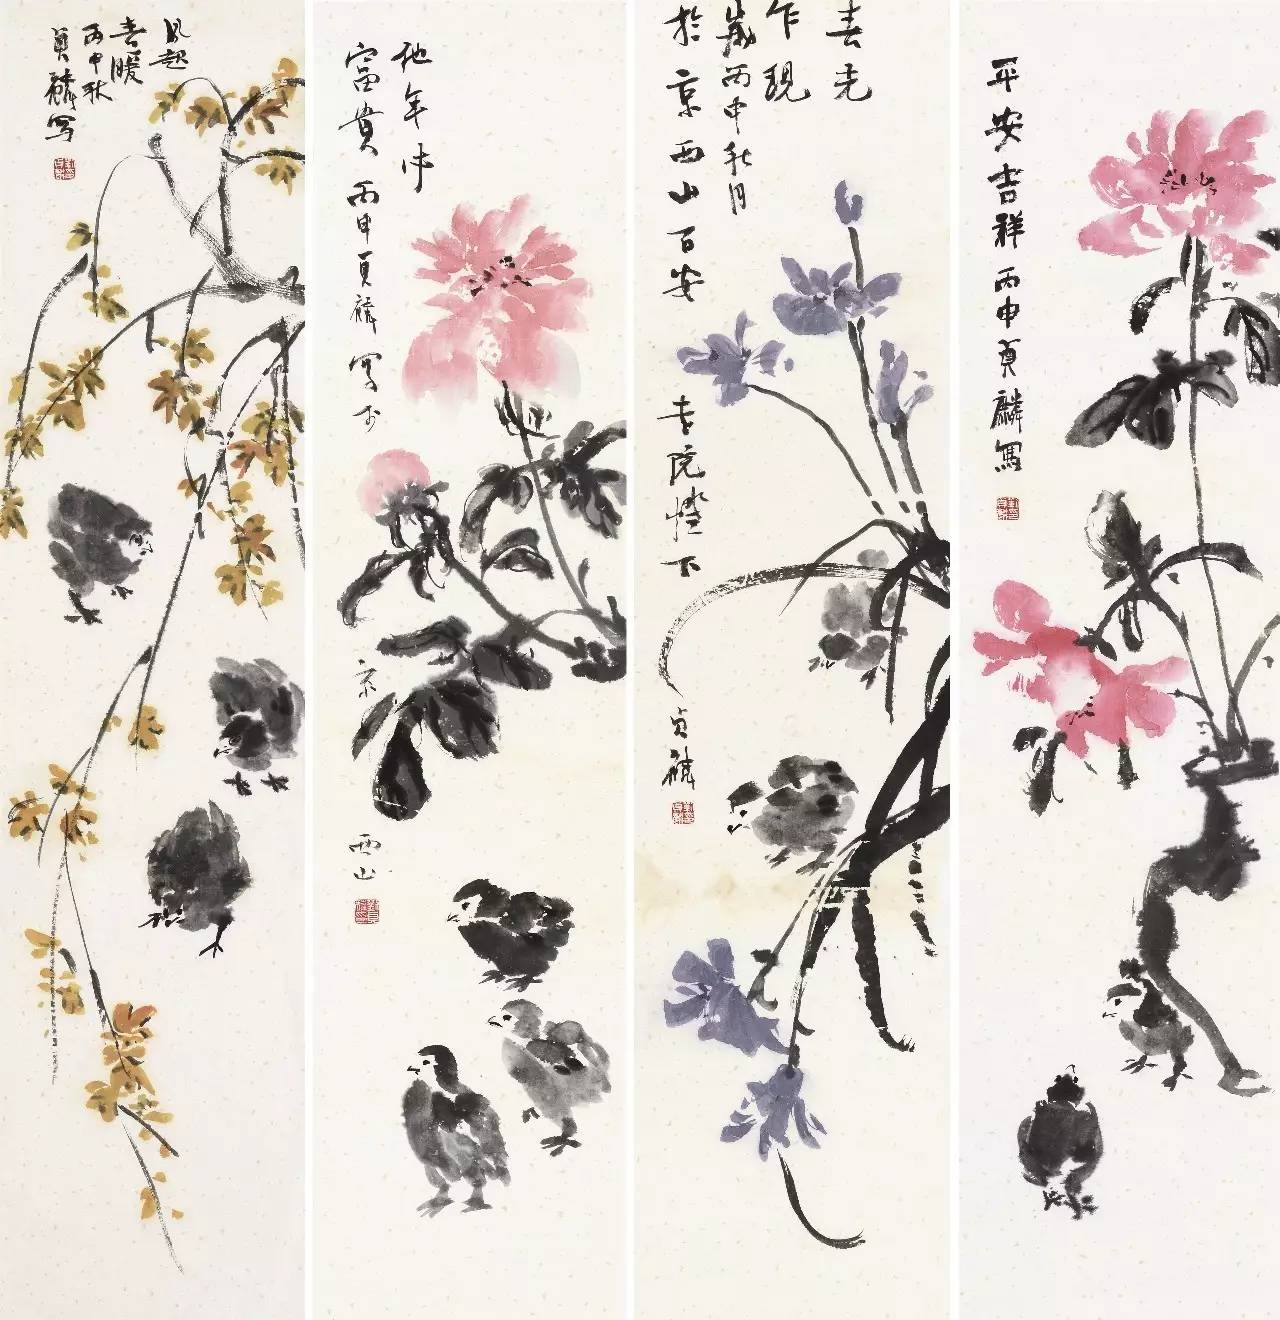 平安吉祥丙申貞麟寫
春光
乍現
歲丙申秋月
於京西山百安院燈下貞麟
他年
富貴丙申貞麟写於京西山
風起
春暖
丙申秋
貞麟写